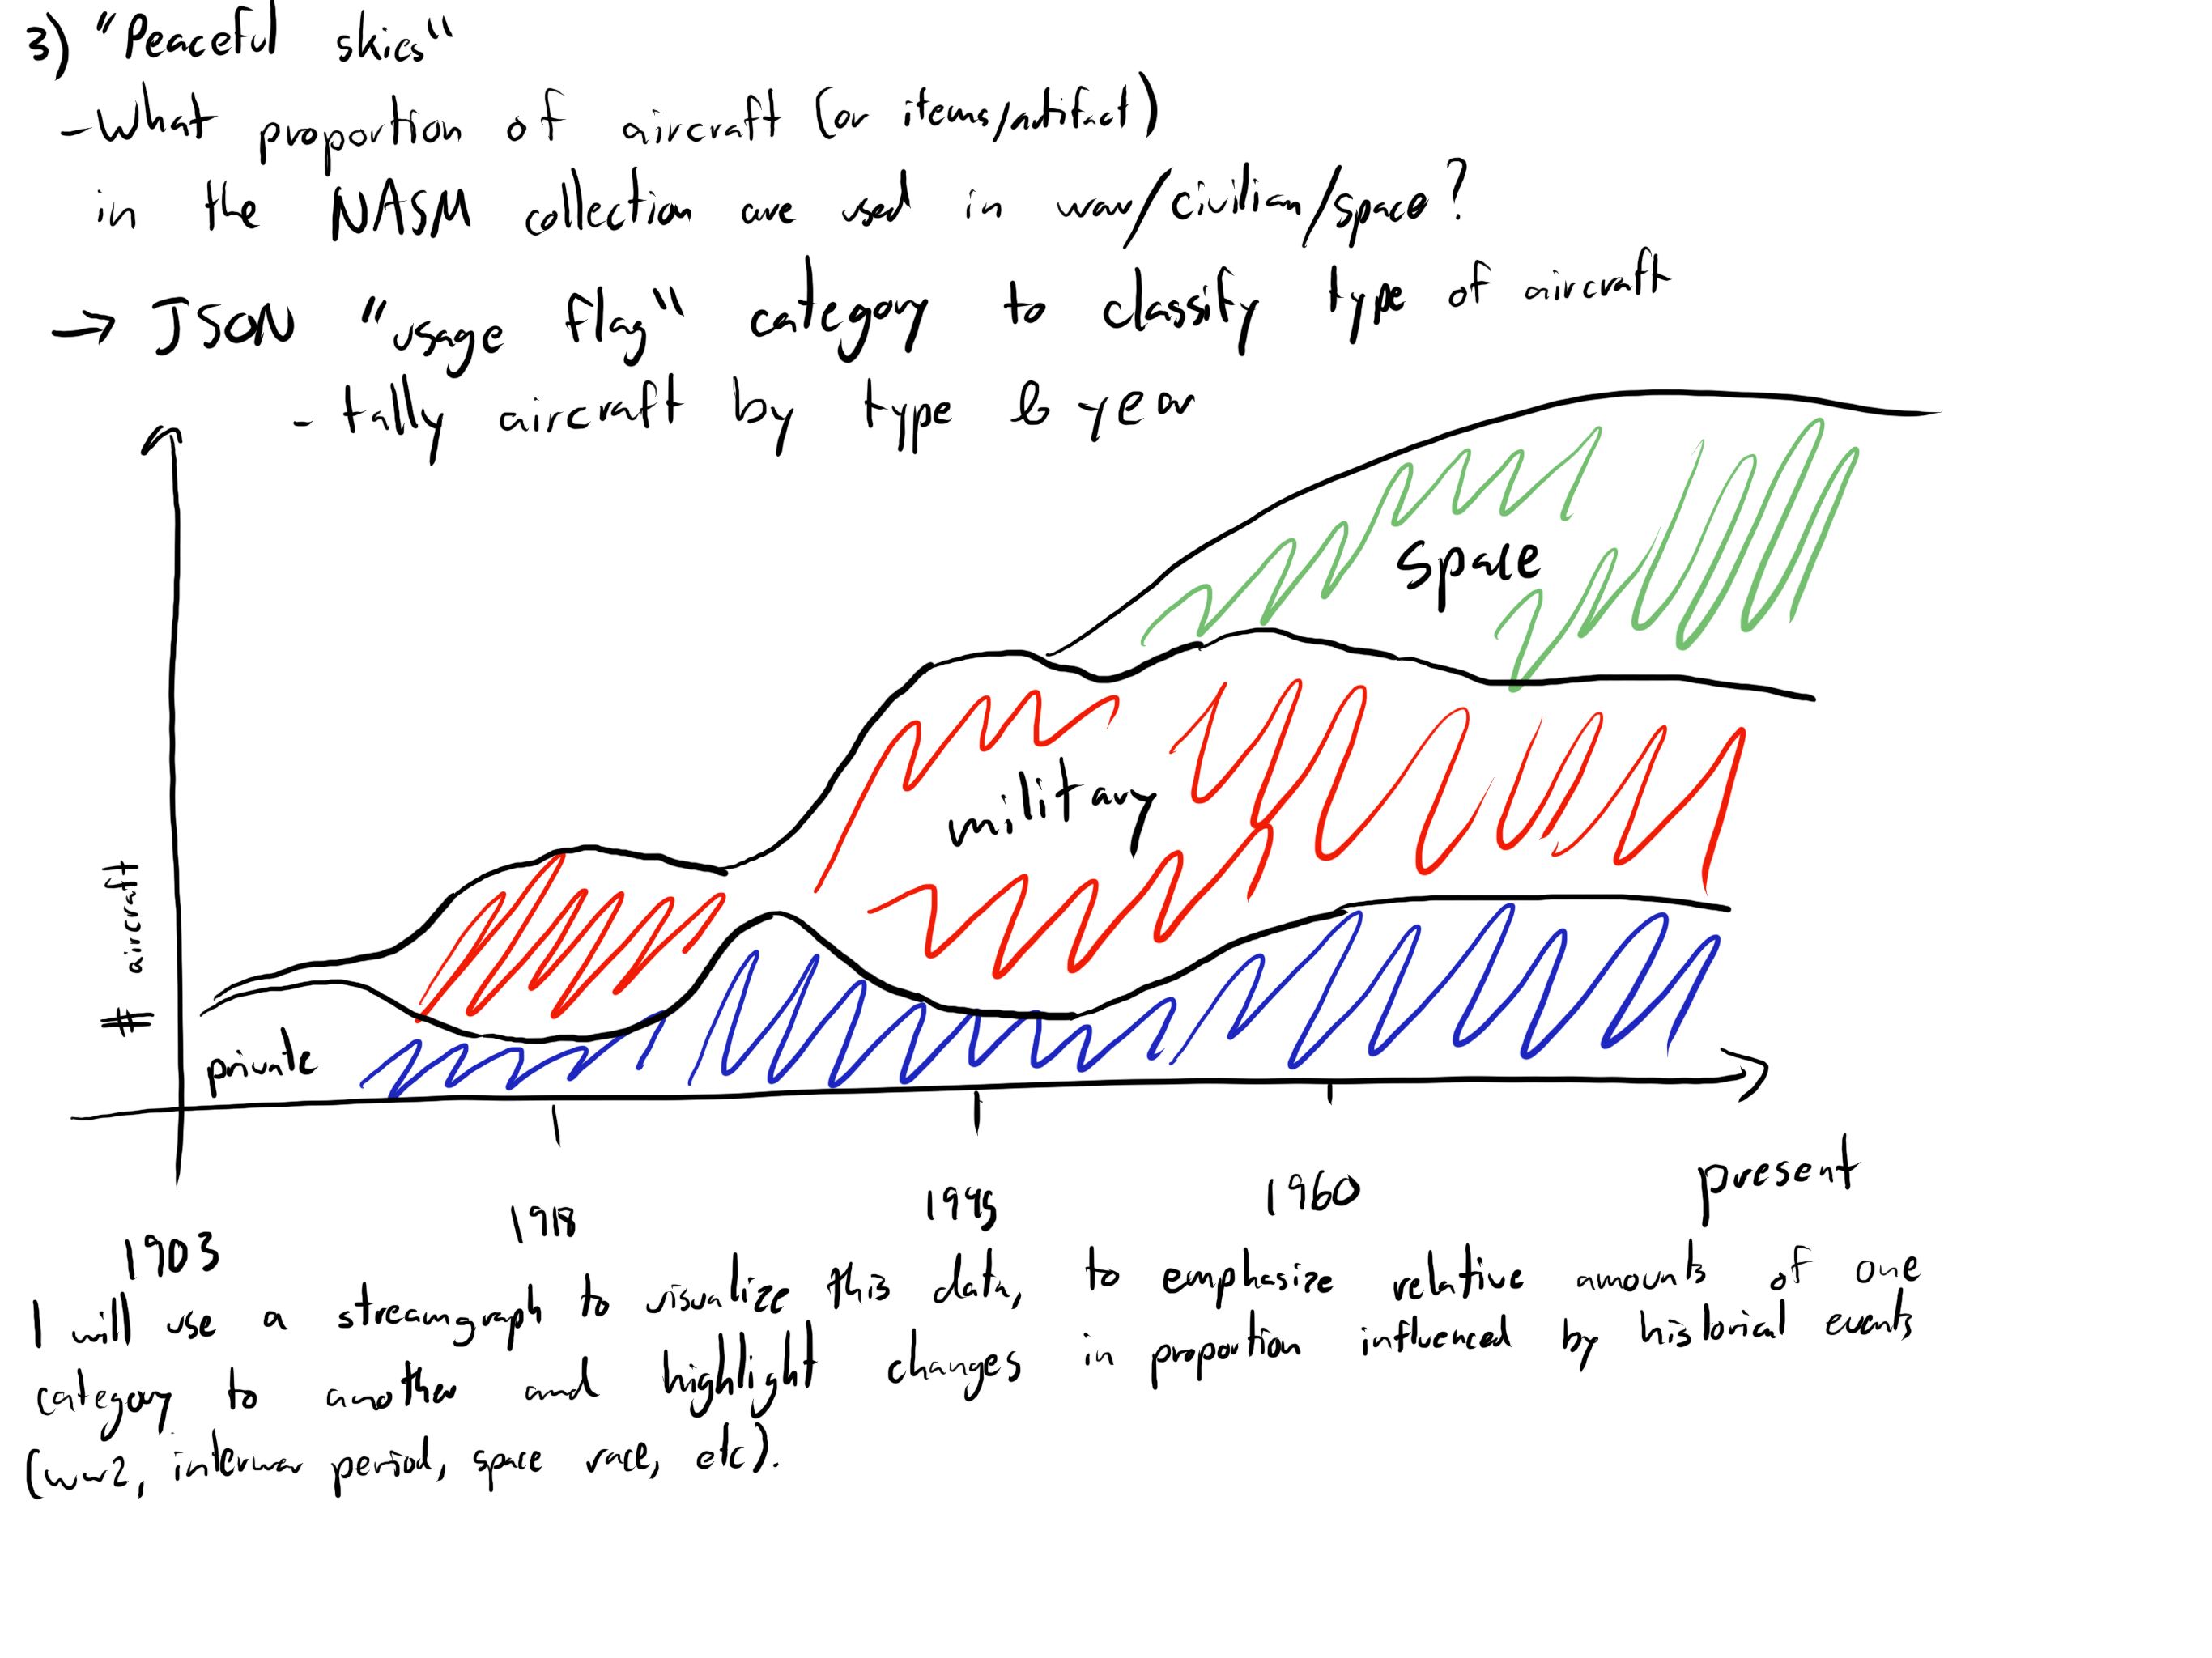 3) "Peaceful skies"
- What proportion of aircraft (or items/artifact)
in the NASM collection are used in war/civilian/space?
→ JSON "usage flag" category to classify type of aircraft
- tally aircraft by type & year
space
military
# aircraft
private
1903 1918 1945 1960 present
I will use a streamgraph to visualize this data, to emphasize relative amounts of one
category to another and highlight changes in proportion influenced by historical events
(ww2, interwar period, space race, etc).